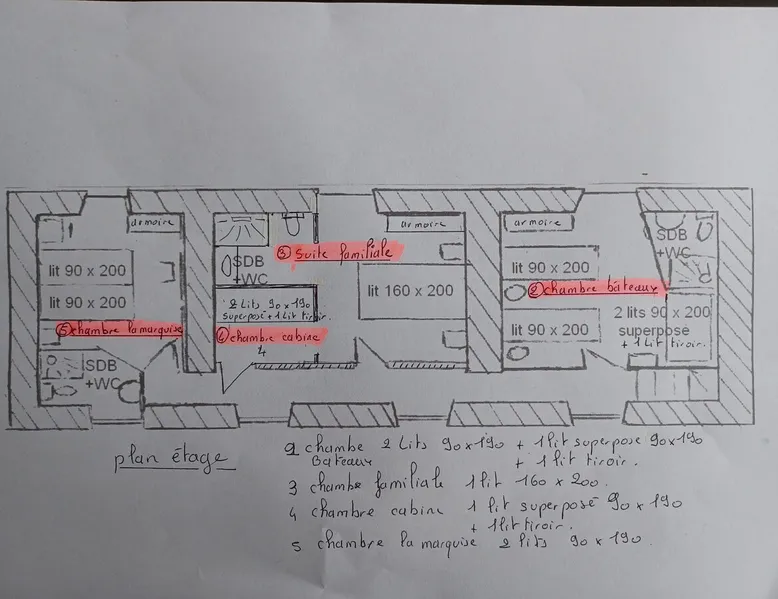 armoire
lit 90 x 200
lit 90 x 200
5 chambre la marquise
SDB
+WC
SDB
+WC
3 Suite familiale
2 Lits 90x190
superposé + 1 Lit tiroir.
4 chambre cabine
4
armoire
lit 160 x 200
armoire
lit 90 x 200
2 chambre bâteaux
lit 90 x 200
SDB
+WC
2 lits 90 x 200
superposé
+ 1 lit tiroir.
plan étage
2 chambe 2 Lits 90x190 + 1 lit superposé 90x190
Bateaux + 1 lit tiroir.
3 chambe familiale 1 lit 160 x 200.
4 chambre cabine 1 lit superposé 90 x 190
+ 1 lit tiroir.
5 chambre la marquise 2 lits 90 x 190.